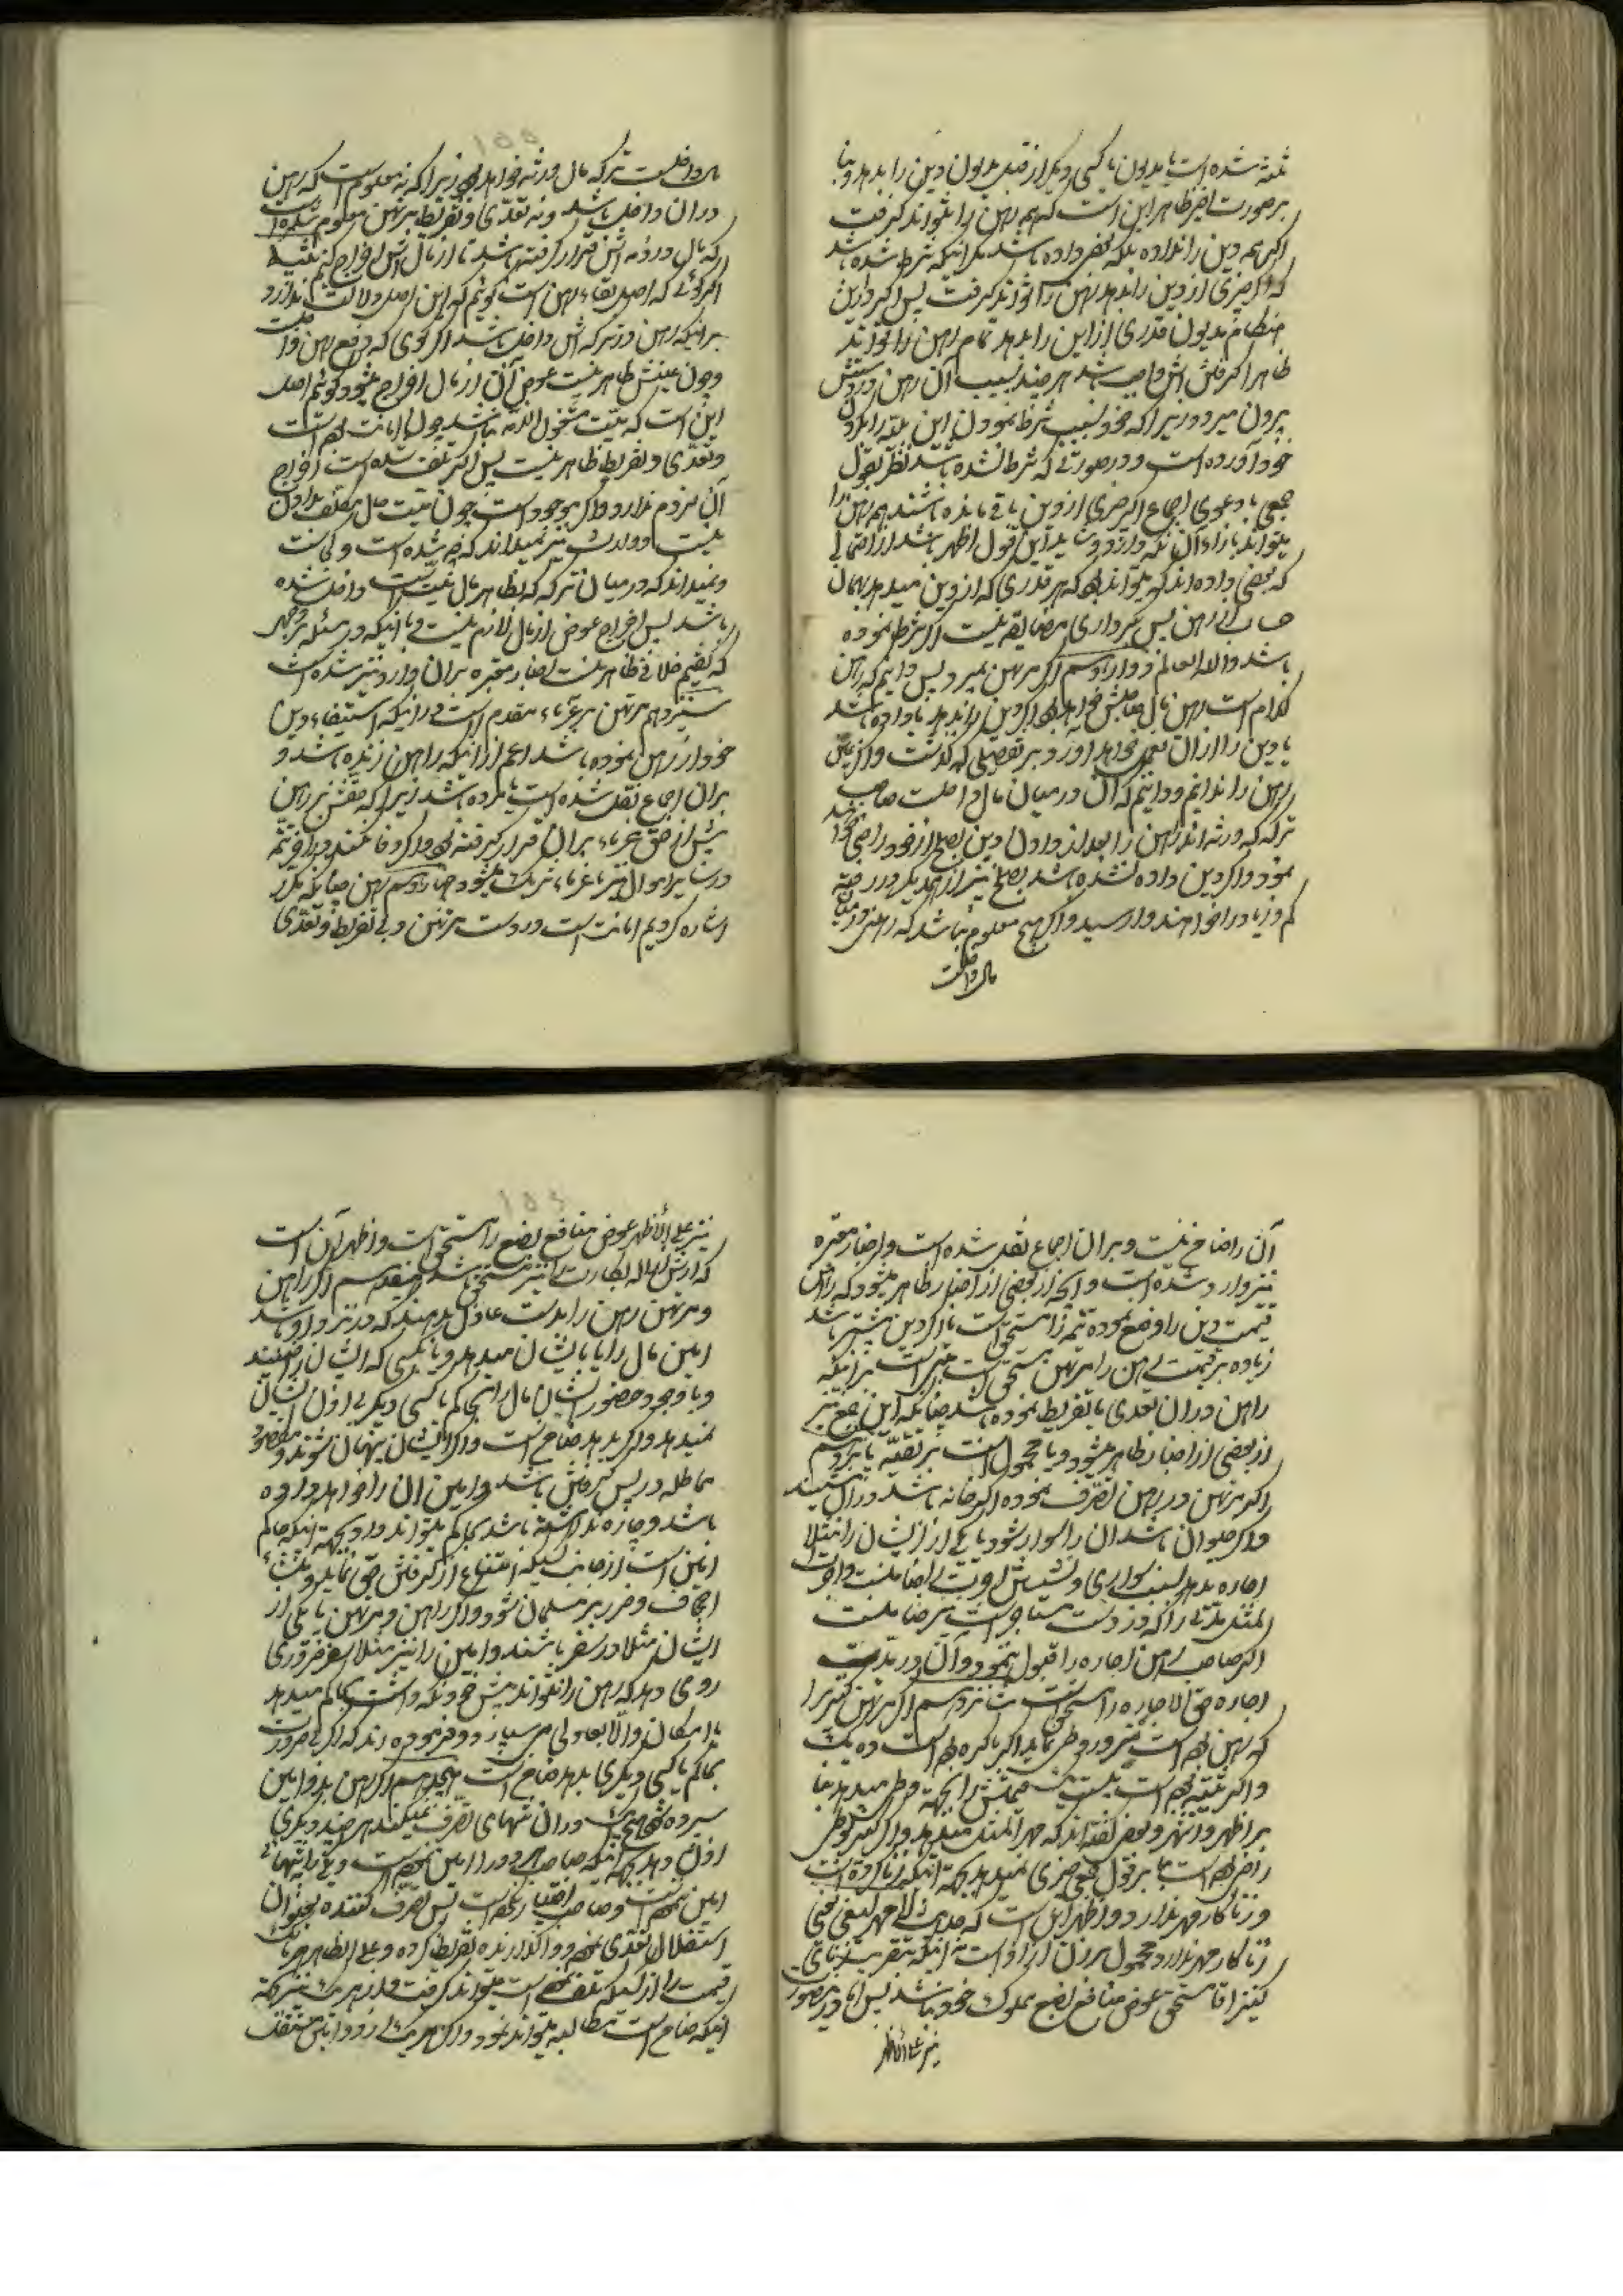 شده است یا مدیون یا کسی دیگر از قبل مدیون دین را بدهد و بنا
بر صورت اخیر ظاهر این است که همه رهن را بتواند گرفت
اگر همه دین را نداده بلکه بعض داده باشد مگر اینکه شرط شده باشد
که اگر چیزی از دین را بدهد رهن را تواند گرفت پس اگر در این
هنگام مدیون قدری از این را بدهد تمام رهن را تواند
ظاهرا گرفتن اش واجب باشد هر چند بسبب آن رهن از دستش
بیرون میرود زیرا که خود بسبب شرط نمودن این بلیه را بگردن
خود آورده است و در صورتی که شرط نشده باشد نظر بقول
جمعی با دعوی اجماع اگر چیزی از دین باقی مانده باشد هم رهن را
میتواند بازاء آن نگه دارد و شاید این قول اظهر باشد از احتمالی
که بعضی داده اند که میتواند که هر قدری که از دین میدهد بهمان
حساب از رهن پس برداری مضایقه نیست اگر شرط نموده
باشد والله العالم دوازدهم اگر مرتهن بمیرد پس دانیم که رهن
کدام است رهن مال صاحبش خواهد بود اگر دین را بدهد یا داده باشد
یا دین را از آن بعمل خواهد آورد بر تفصیلی که گذشت و اگر
رهن را ندانیم و دانیم که آن در میان مال داخلست صاحب
ترکه که ورثه اند رهن را بعد از دادن دین بصلح از خود راضی
نمود و اگر دین داده نشده باشد بصلح نیز از یکدیگر در حصه
کم و زیاد را خواهند وارسید و اگر هیچ معلوم نباشد که رهن در میان
مال داخلست
مال داخلست ترکه مال ورثه خواهد بود زیرا که نه معلوم است که رهن
در آن داخل باشد و نه تعدی و تفریط مرتهن معلوم شده است
که مال در ذمه اش قرار گرفته باشد تا از مال اش اخراج کنیم
اگر گوئی که اصل بقاء رهن است گوئیم که این اصل دلالت ندارد
بر اینکه رهن در ترکه اش داخل باشد اگر گوی که رهن
و چون عینش ظاهر نیست عوض آن از مال اخراج میشود گوئیم اصل
این است که میت مشغول الذمه نباشد چون امانت بوده است
و تعدی و تفریط ظاهر نیست پس اگر تلف شده است اخراج
آن لزوم ندارد و اگر موجود است چون میت حال مکلف بدادن
نیست و وارث نیز نمیداند که چه شده است و کجاست
و نمیداند که در میان ترکه که بظاهر مال میت است داخل شده
باشد پس اخراج عوض از مال لازم نیست و با اینکه در مسئله بر وجهی
که گفتیم خلافی ظاهر نیست اخبار معتبره بر آن وارد نیز شده است
سیزدهم مرتهن بر غرماء مقدم است در اینکه استیفاء دین
خود از رهن نموده باشد اعم از اینکه راهن زنده باشد و
بر آن اجماع نقل شده است یا مرده باشد زیرا که حقش بر رهن
پیش از حق غرماء بر آن قرار گرفته بود و اگر وفا نکند در تتمه
در سایر اموال نیز با غرماء شریک میشود چهاردهم رهن چنانکه مکرر
اشاره کردیم امانت است در دست مرتهن و بی تفریط و تعدی
آن را ضامن نیست و بر آن اجماع نقل شده است و اخبار معتبره
نیز وارد شده است و آنچه از بعضی از اخبار ظاهر میشود که راهن
قیمت دین را وضع نموده تتمه را مستحق است یا اگر دین بیشتر باشد
زیاده بر قیمت رهن را مرتهن مستحق است بر اینکه
راهن در آن تعدی یا تفریط نموده باشد چنانکه این جمع نیز
از بعضی از اخبار ظاهر میشود و یا محمول است بر تقیه پانزدهم
اگر مرتهن در رهن تصرف نموده اگر خانه باشد در آن نشیند
و اگر حیوان باشد آن را سوار شود یا یکی از ایشان را مثلا
اجاره بدهد بسبب سواری و نشستن اجرت را ضامنست و اجرت
المثل مدتی را که در دست مستاجر است نیز ضامنست
اگر صاحب رهن اجاره را قبول ننمود و آن در مدت
اجاره حق الاجاره را مستحق است شانزدهم اگر مرتهن کنیز را
که رهن بوده است بزور وطی نماید اگر باکره بوده است ده یک
و اگر ثیبه بوده است بیست یک قیمتش را بجهت وطی میدهد بنا
بر اظهر و اشهر و بعضی گفته اند که مهر المثل میدهد و اگر کنیز بوطی
راضی بوده است بنا بر قول جمعی چیزی نمیدهد بجهت اینکه زنا کرده است
و زنا کار مهر ندارد و اظهر این است که حدیث لا مهر لبغی یعنی
زنا کار مهر ندارد محمول بر زن آزاد است نه اینکه بتقریب زنای
کنیز آقا مستحق عوض منافع بضع مملوک خود نباشد پس آقا در این صورت
نیز علی الاظهر
نیز علی الاظهر عوض منافع بضع را مستحق است و اظهر آن است
که ارش ازاله بکارت را نیز مستحق باشد هفدهم اگر راهن
و مرتهن رهن را بدست عادل بدهند که در نزد او باشد
امین مال را یا بایشان میدهد و یا بکسی که ایشان راضیند
و با وجود حضور ایشان مال را بحاکم یا کسی دیگر بی اذن ایشان
نمیدهد و اگر بدهد ضامن است و اگر ایشان پنهان شوند و مقصود
مماطله در پس گرفتن باشد و امین آن را خواهد داده
باشد و چاره نداشته باشد بحاکم میتواند داد بجهت اینکه حاکم
امین است از جانب کسیکه امتناع از گرفتن حق نماید و
اجحاف و ضرر بر مسلمان نشود و اگر راهن و مرتهن یا یکی از
ایشان مثلا در سفر باشند و امین را نیز مثلا سفر ضروری
روی دهد که رهن را نتواند پیش خود نگه داشت بحاکم میدهد
با امکان والا بعادلی می سپارد و فرموده اند که اگر بی ضرورت
بحاکم یا کسی دیگری بدهد ضامن است هیجدهم اگر رهن بدو امین
سپرده شود هیچیک در آن تنهای تصرف نمیکند هر چند دیگری
اذن دهد بجهت اینکه صاحب هر دو را امین نموده است و یکی را تنهائی
امین ننموده است و صاحب اختیار نکرده است پس تصرف کننده بعنوان
استقلال تعدی نموده و واگذارنده تفریط کرده و علی الظاهر هر یک
قیمت را از کسیکه تلف نموده است میتواند گرفت و از هر یک نیز بجهت
اینکه ضامن است مطالبه میتواند نمود و اگر هر یک از دو امین متفقند